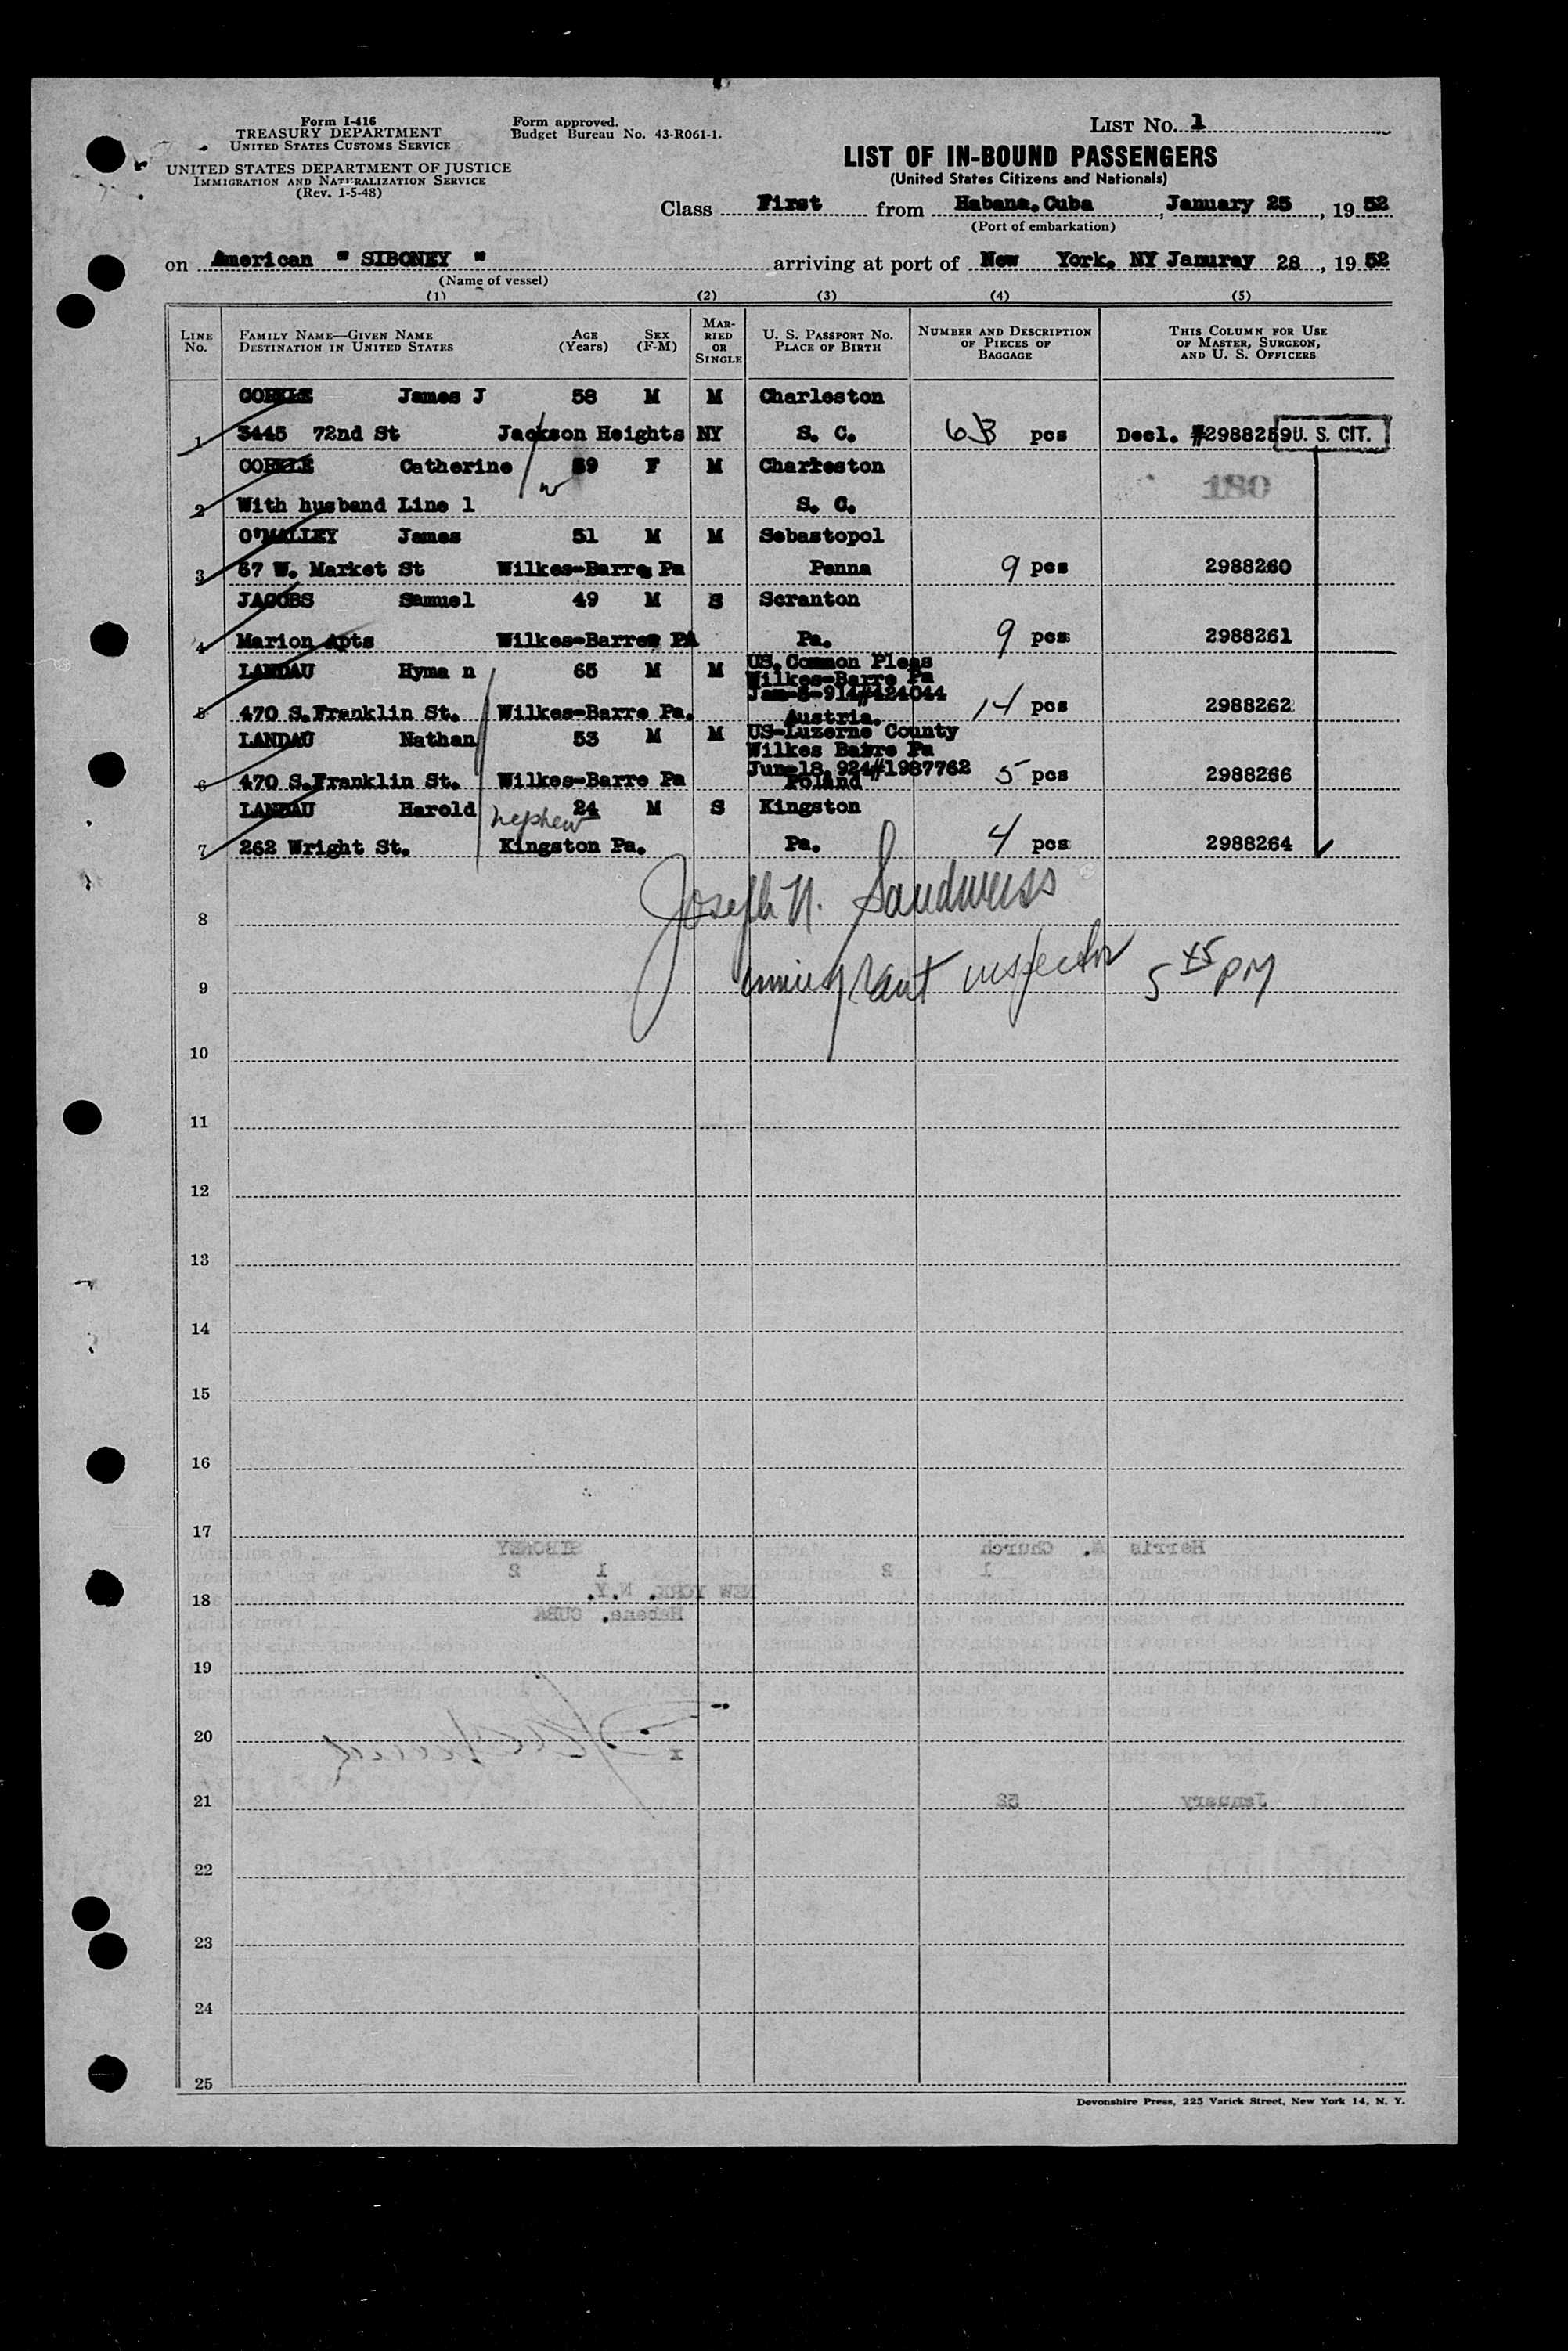 Form I-416
TREASURY DEPARTMENT
UNITED STATES CUSTOMS SERVICE
UNITED STATES DEPARTMENT OF JUSTICE
IMMIGRATION AND NATURALIZATION SERVICE
(Rev. 1-5-48)
Form approved.
Budget Bureau No. 43-R061-1.
LIST NO. 1
LIST OF IN-BOUND PASSENGERS
(United States Citizens and Nationals)
Class First from Habana. Cuba, January 25, 19 52
(Port of embarkation)
on American " SIBONEY " arriving at port of New York, NY Januray 28, 19 52
(Name of vessel)
(1) (2) (3) (4) (5)
LINE NO. FAMILY NAME—GIVEN NAME DESTINATION IN UNITED STATES AGE (Years) SEX (F-M) MARRIED OR SINGLE U. S. PASSPORT NO. PLACE OF BIRTH NUMBER AND DESCRIPTION OF PIECES OF BAGGAGE THIS COLUMN FOR USE OF MASTER, SURGEON, AND U. S. OFFICERS
James J 58 M M Charleston
1 3445 72nd St Jackson Heights NY S. C. 6B pcs Decl. #2988259 U. S. CIT.
Catherine 59 F M Charleston
w
180
2 With husband Line 1 S. C.
O'MALLEY James 51 M M Sebastopol
3 67 W. Market St Wilkes-Barre Pa Penna 9 pcs 2988260
JACOBS Samuel 49 M S Scranton
4 Marion Apts Wilkes-Barre PA Pa. 9 pcs 2988261
LANDAU Hyma n 65 M M US. Common Pleas
Wilkes-Barre Pa
Jan-8-914#424044
5 470 S.Franklin St. Wilkes-Barre Pa. Austria. 14 pcs 2988262
LANDAU Nathan 53 M M US-Luzerne County
Wilkes Barre Pa
Jun-18 924#1987762
6 470 S.Franklin St. Wilkes-Barre Pa Poland 5 pcs 2988266
LANDAU Harold 24 M S Kingston
nephew
7 262 Wright St. Kingston Pa. Pa. 4 pcs 2988264
Joseph N. Sandweiss
8
immigrant inspector 5 45 PM
9
10
11
12
13
14
15
16
17
Harris A. Church SIBONEY
1 2 1 2
NEW YORK. N.Y.
18
Habana. CUBA
19
20
21
January 52
22
23
24
25
Devonshire Press, 225 Varick Street, New York 14, N. Y.